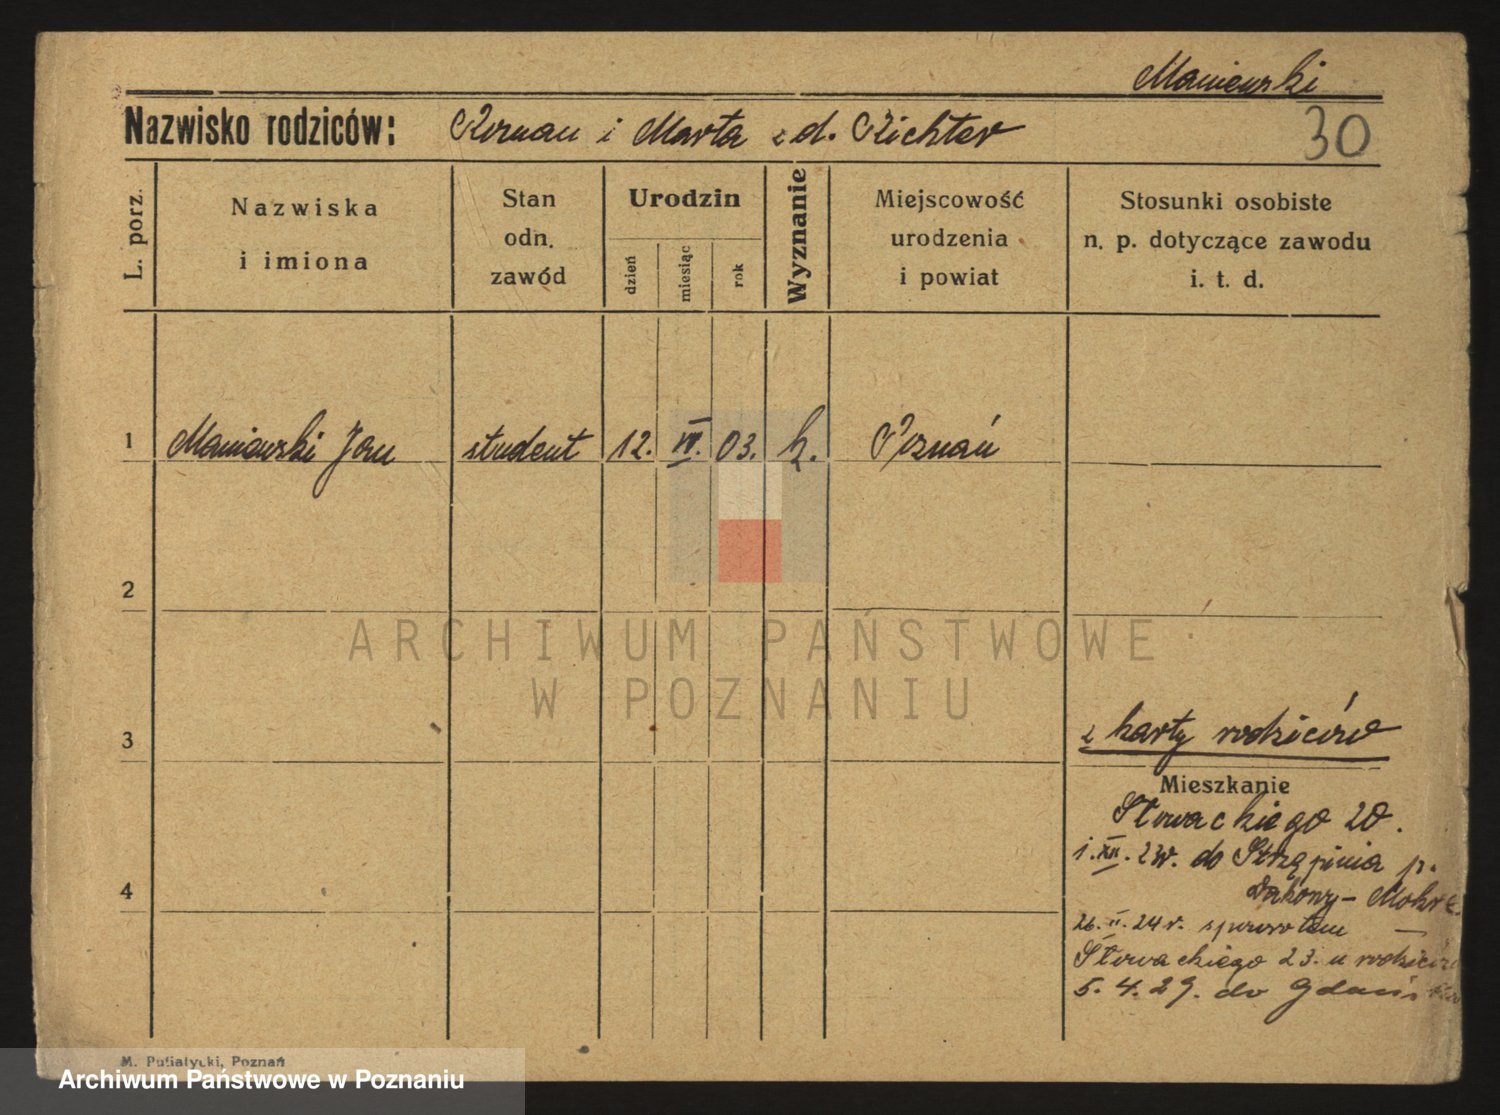 Maniewski
Nazwisko rodziców: Roman i Marta z d. Richter
30
L. porz.
Nazwiska
i imiona
Stan
odn.
zawód
Urodzin
dzień
miesiąc
rok
Wyznanie
Miejscowość
urodzenia
i powiat
Stosunki osobiste
n. p. dotyczące zawodu
i. t. d.
1 Maniewski Jan student 12. 03. k. Poznań
2
3
z karty rodziców
Mieszkanie
Słowackiego 20.
1. XII. 23r. do p.
Dakowy - Mokre
4
26. II. 24 r. spowrotem
Słowackiego 23. u rodziców
5. 4. 29. do
ARCHIWUM PAŃSTWOWE
W POZNANIU
M. Putiatycki, Poznań
Archiwum Państwowe w Poznaniu